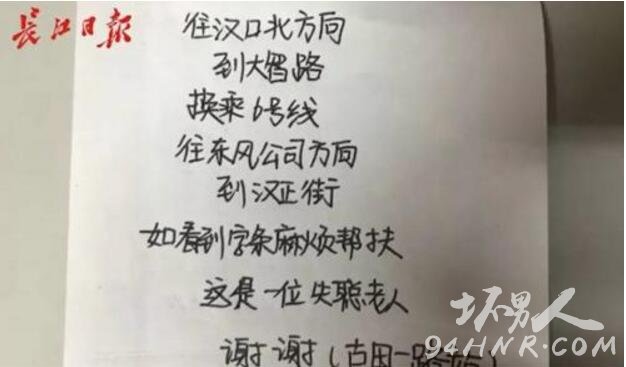 长江日报
往汉口北方向
到大智路
换乘6号线
往东风公司方向
到汉正街
如看到字条麻烦帮扶
这是一位失聪老人
谢谢(古田一路站)
坏男人
94HNR.COM